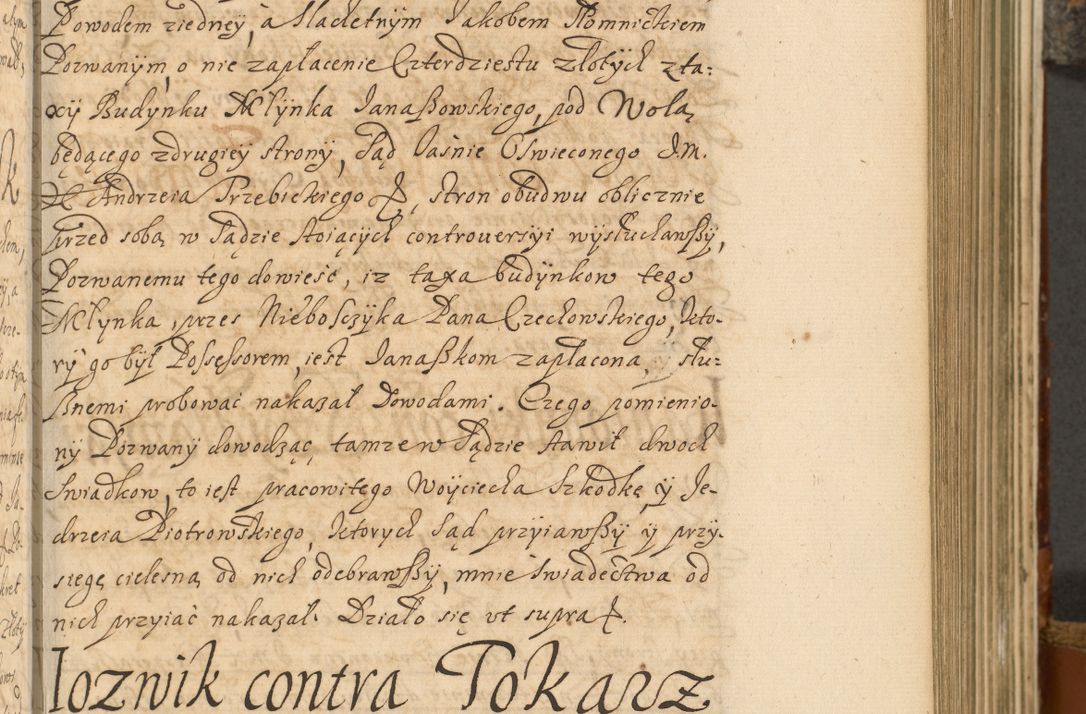 Powodem ziedney, a Slachetnym Jakobem Słomnickiem
Pozwanym, o nie zapłacenie Czterdziestu złotych z ta:
xy Budynku Młynka Janaßowskiego, pod Wolą
będącego zdrugiey strony, Sąd Jaśnie Oświeconego J.M.
X Andrzeia Trzebickiego, stron obudwu oblicznie
przed sobą w Sądzie stoiących controversyi wysłuchawßy,
Pozwanemu tego dowieść, iz taxa budynkow tego
Młynka, przes Niebosczyka Pana Czechowskiego, kto-
ry go był Possessorem, iest Janaßkom zapłacona, y słu:
ßnemi probować nakazał Dowodami. Czego pomienio-
ny Pozwany dowodząc, tamze w Sądzie stawił dwoch
Swiadkow, to iest pracowitego Woyciecha Szkodkę, y Ję-
drzeia Piotrowskiego, ktorych Sąd przyiawßy y przy-
sięgę cielesną od nich odebrawßy, mnie swiadectwa od
nich przyiąć nakazał. Działo się ut supra.
Iozwik contra Tokarz